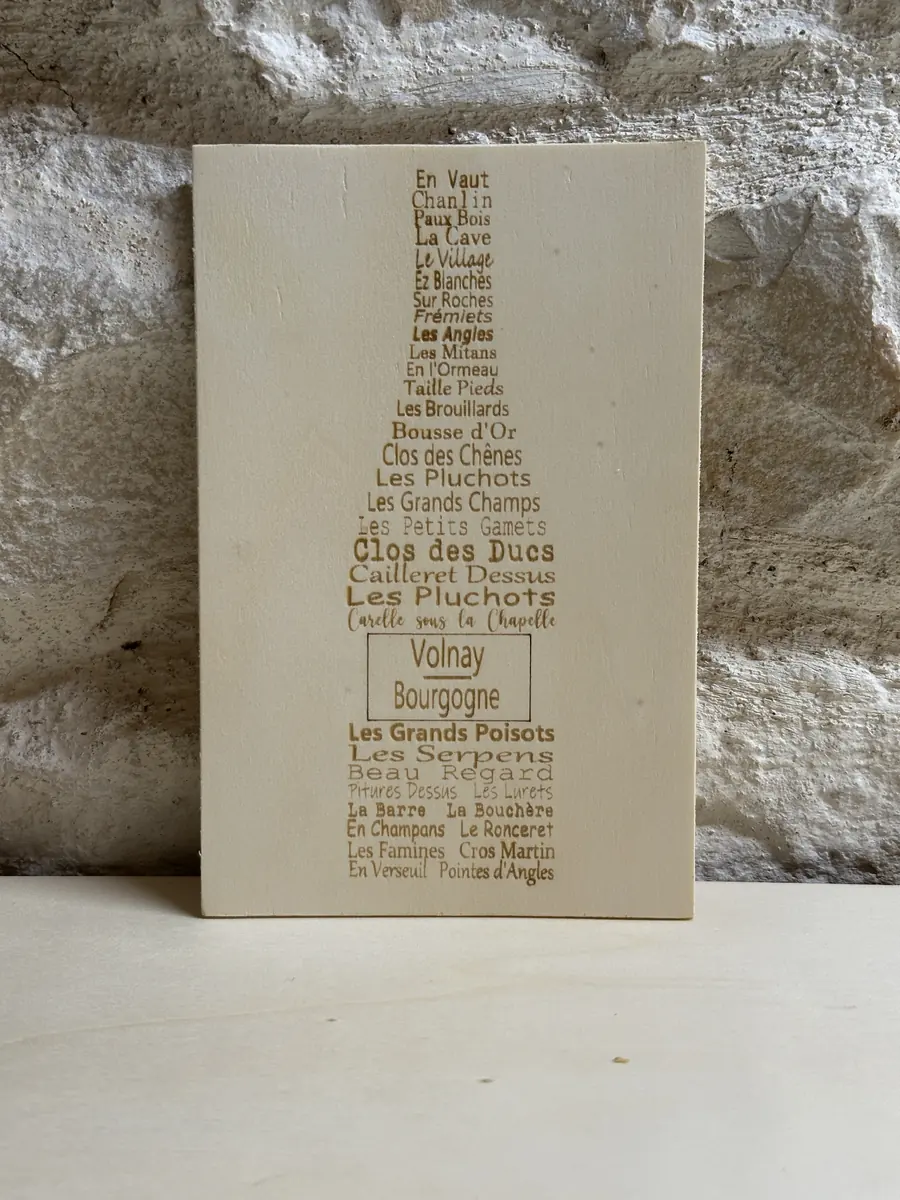 En Vaut
Chanlin
Paux Bois
La Cave
Le Village
Ez Blanches
Sur Roches
Frémiets
Les Angles
Les Mitans
En l'Ormeau
Taille Pieds
Les Brouillards
Bousse d'Or
Clos des Chênes
Les Pluchots
Les Grands Champs
Les Petits Gamets
Clos des Ducs
Cailleret Dessus
Les Pluchots
Carelle sous la Chapelle
Volnay
Bourgogne
Les Grands Poisots
Les Serpens
Beau Regard
Pitures Dessus Les Lurets
La Barre La Bouchère
En Champans Le Ronceret
Les Famines Cros Martin
En Verseuil Pointes d'Angles